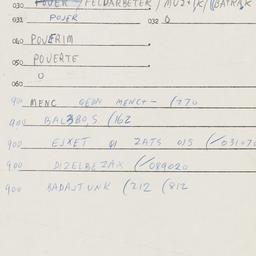 030 POUER / FELDARBETER /
031 POJER 032 0
040 POVERIM
050 POVERTE
0
060
900 MENC GEDN MENC+- (270
900 BAL3BO,S (162
900 EJXET 91 ZATS 015 (/03107
900 DIZELBE ZAX (/089020
900 BADAJTUNK (212 (812